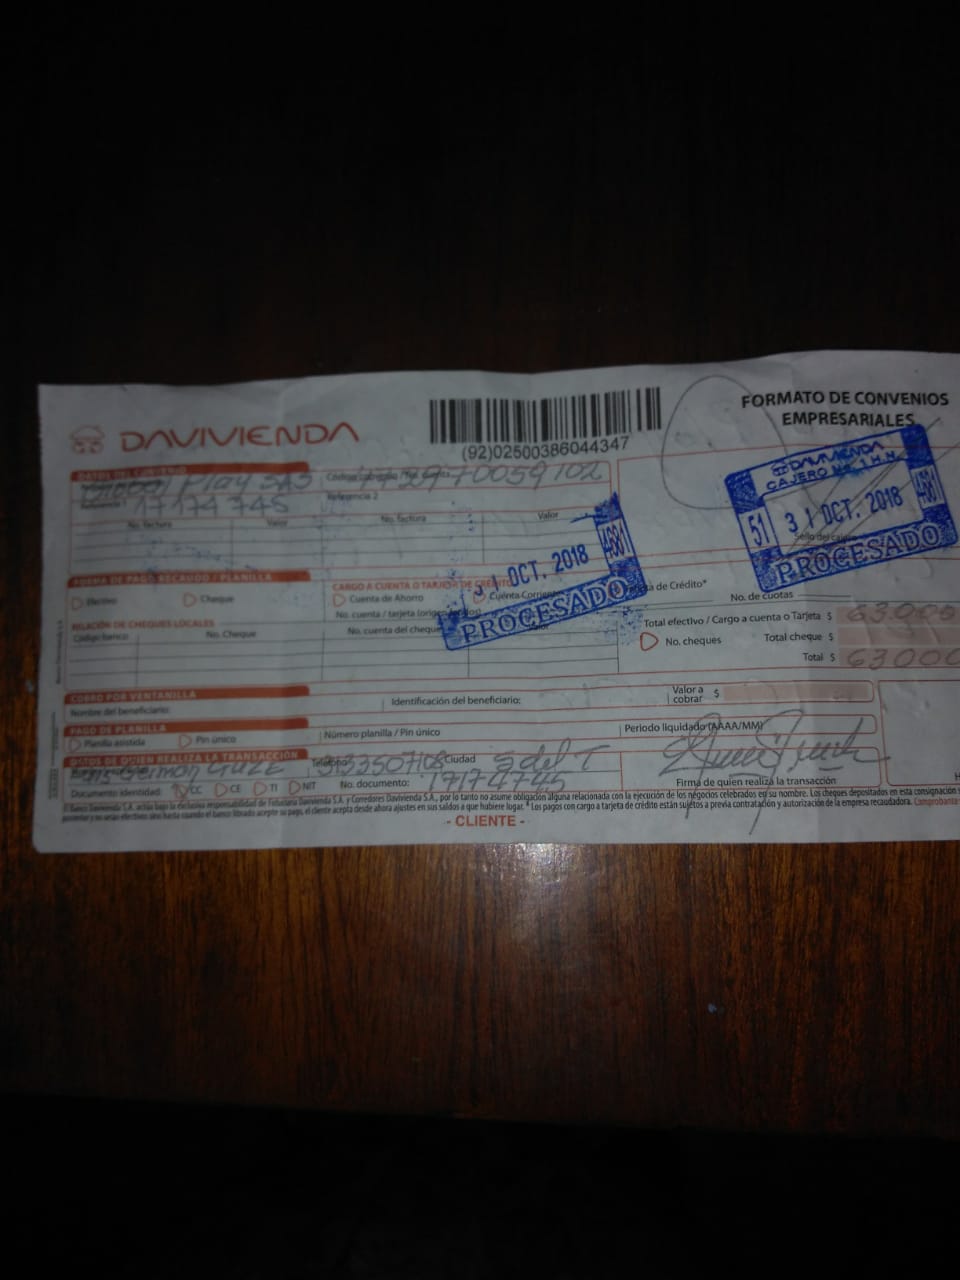 DAVIVIENDA
(92)02500386044347
FORMATO DE CONVENIOS
EMPRESARIALES
DATOS DEL CONVENIO
Global Play SAS
Referencia 1
17174745
Referencia 2
No. factura Valor No. factura Valor
DAVIVIENDA
CAJERO No. 1 H.N.
51
31 OCT. 2018
4881
Sello del cajero
PROCESADO
OCT. 2018
4881
PROCESADO
FORMA DE PAGO RECAUDO / PLANILLA
Efectivo Cheque
CARGO A CUENTA O TARJETA DE CRÉDITO
Cuenta de Ahorro Cuenta Corriente
de Crédito*
No. de cuotas
No. cuenta / tarjeta (origen
RELACIÓN DE CHEQUES LOCALES
Código banco No. Cheque No. cuenta del cheque Valor
Total efectivo / Cargo a cuenta o Tarjeta $ 63.000
No. cheques Total cheque $
Total $ 63000
COBRO POR VENTANILLA
Nombre del beneficiario: Identificación del beneficiario: Valor a cobrar $
PAGO DE PLANILLA
Planilla asistida Pin único Número planilla / Pin único Periodo liquidado (AAAA/MM)
DATOS DE QUIEN REALIZA LA TRANSACCIÓN
German Teléfono 3133507108 Ciudad
Documento identidad: CC CE TI NIT No. documento: 17174745 Firma de quien realiza la transacción
El Banco Davivienda S.A. actúa bajo la exclusiva responsabilidad de Fiduciaria Davivienda S.A. y Corredores Davivienda S.A., por lo tanto no asume obligación alguna relacionada con la ejecución de los negocios celebrados en su nombre. Los cheques depositados en esta consignación
posterior y no serán efectivos sino hasta cuando el banco librado acepte su pago, el cliente acepta desde ahora ajustes en sus saldos a que hubiere lugar. * Los pagos con cargo a tarjeta de crédito están sujetos a previa contratación y autorización de la empresa recaudadora.
- CLIENTE -